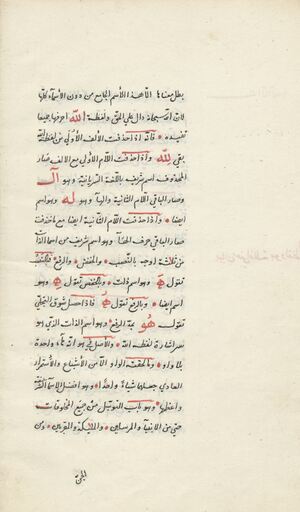 بطل معناها الا هذا الاسم الجامع من دون الاسماء كلها
لان اسمية دال على الحق ولفظة الله احرفها جميعا
تفيده فانه اذا حذفت الالف الأولى من لفظة الله
بقى لله واذا حذفت اللام الأولى مع الالف صار
المحذوف اسم شريف باللغة السريانية وهو آل
وصار الباقى اللام الثانية والها وهو له وهو اسم
ايضا واذا حذفت اللام الثانية ايضا مع الأولى
صار الباقى حرف الهاء وهو اسم شريف من اسماء الذات
من ثلاثة اوجه بالنصب والخفض والرفع فالنصب
تقول ه وهو اسم ذات وبالخفض تقول ه وهو
اسم ايضا وبالرفع تقول ه فاذا حصل شوق التجلى
تقول هو بمد الرفع وهو اسم الذات الذى هو
اشارة لفظة الله والأصل فى هو انه ها واحدة
بلا واو والحقت الواو الا من الأشباع والأستمرار
العادى جعلهن شيئا واحدا وهو افضل الاسماء
واعظمها وهو باب التوسل من جميع المخلوقات
حتى من الانبيا والمرسلين والملايكة والمقربين